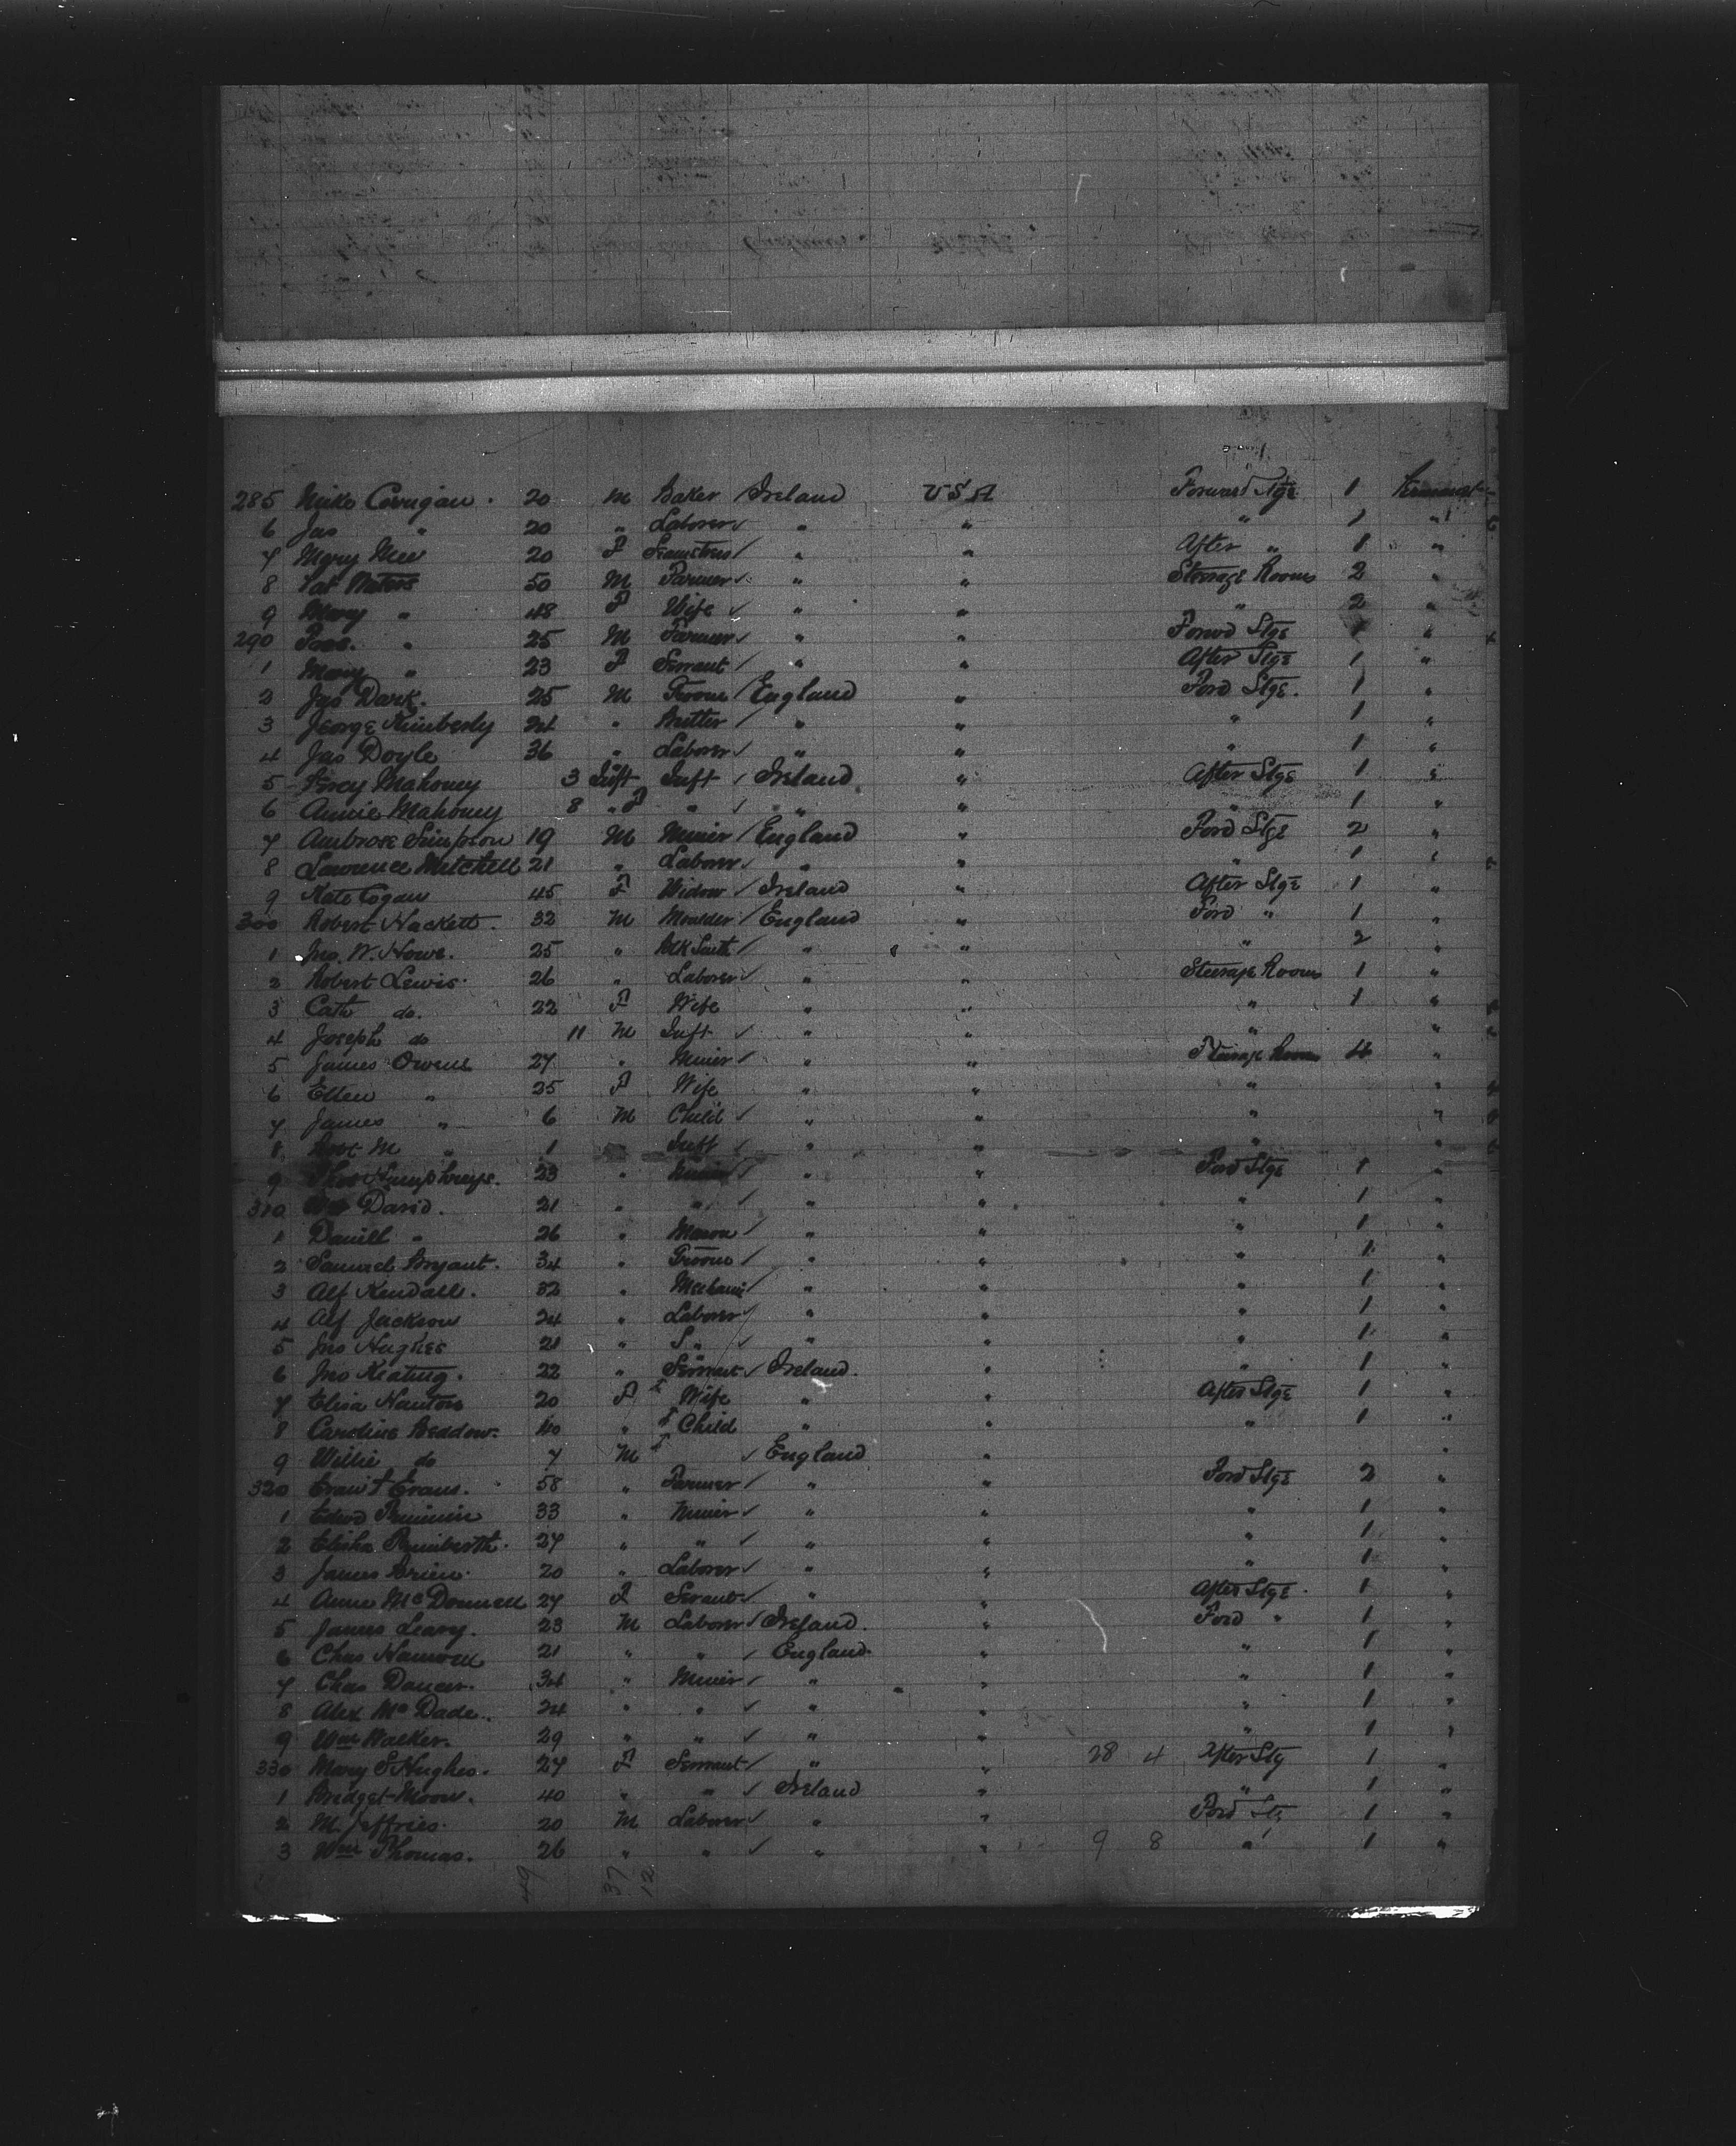 285 Mike Corrigan. 20 M Baker / Ireland USA Forward Stge 1
6 Jas " 20 " Laborer / " " " 1 "
7 Mary Mee 20 F Seamstress / " " After " 1 "
8 Pat Waters 50 M Farmer / " " Steerage Rooms 2 "
9 Mary " 48 F Wife / " " " 2 "
290 " 25 M Farmer / " " Forwd Stge 1 "
1 Mary " 23 F Servant / " " After Stge 1 "
2 Jas Dark. 25 M Groom / England " Ford Stge. 1 "
3 George Kimberly 24 " / " " " 1 "
4 Jas Doyle 36 " Laborer / " " " 1 "
5 Percy Mahoney 3 Inft Inft / Ireland " After Stge 1 "
6 Annie Mahoney 8 " F " / " " " 1 "
7 Ambrose Simpson 19 M Miner / England " Ford Stge 2 "
8 Lawrence Mitchell 21 " Laborer / " " " 1 "
9 Kate Cogan 45 F Widow / Ireland " After Stge 1 "
300 Robert Hackett. 32 M Moulder / England " Ford " 1 "
1 Jno. W. Howe. 25 " Blk Smith / " " " 2 "
2 Robert Lewis. 26 " Laborer / " " Steerage Room 1 "
3 Cath do. 22 F Wife " " " 1 "
4 Joseph do 11 M Inft / " " "
5 James Owens 27 " Miner / " " Steerage Room 4 "
6 Ellen " 25 F Wife " " " "
7 James " 6 M Child / " " " "
8 M " 1 Inft / " " " "
9 Thos Humphreys. 23 " Miner / " " Ford Stge 1 "
310 Wm David. 21 " " / " " " 1 "
1 Daniel " 26 " Mason / " " " 1 "
2 Samuel Bryant. 34 " Groom / " " " 1 "
3 Alf Kendall. 32 " Mechanic / " " " 1 "
4 Alf Jackson 24 " Laborer / " " " 1 "
5 Jno Hughes 21 " " " " " 1 "
6 Jno Keating. 22 " Servant / Ireland. " " 1 "
7 Eliza Hanton 20 F Wife " " After Stge 1 "
8 Caroline Beddow. 40 " Child " " " 1 "
9 Willie do 7 M / England " "
320 Evan T Evans. 58 " Farmer / " " Ford Stge 2 "
1 Edwd 33 " Miner / " " " 1 "
2 Elisha 27 " " / " " " 1 "
3 James Brien. 20 " Laborer / " " " 1 "
4 Anne McDonnell 27 F Servant / " " After Stge. 1 "
5 James Leary. 23 M Laborer / Ireland. " Ford " 1 "
6 Chas 21 " " / England. " " 1 "
7 Chas Dancer. 34 " Miner / " " " 1 "
8 Alex McDade. 24 " " / " " " 1 "
9 Wm Walker. 29 " " / " " " 1 "
330 Mary S Hughes. 27 F Servant / " " 28 4 After Stg 1 "
1 Bridget Moore. 40 " " / Ireland " " 1 "
2 M. Jeffries. 20 M Laborer / " " Ford Stg 1 "
3 Wm Thomas. 26 " " / " " 9 8 " 1 "
49 37 12